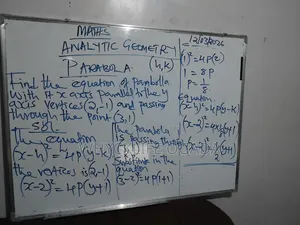 MATHS
ANALYTIC GEOMETRY
PARABOLA
(h,k)
Find the equation of parabola
with it x axis parallel to the y
axis vertices (2,-1) and passing
through the point (3,1)
Sol
The equation
(x-h)²=4p(y-k)
the vertices is (2,-1)
(x-2)²=4p(y+1)
The parabola
is passing through
Substitute in the
equation
(3-2)²=4p(1+1)
12/03/2024
(1)²=4p(2)
1 = 8p
p=1/8
equation
(x-h)²=4p(y-k)
(x-2)²=4x1/8(y+1)
(x-2)²=1/2(y+1)